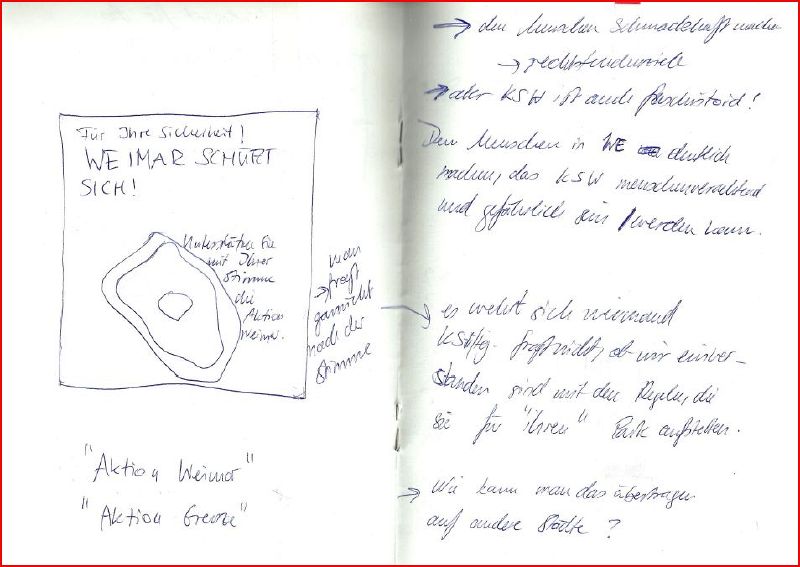 Für Ihre Sicherheit!
WEIMAR SCHÜTZT
SICH!
Unterstützen Sie
mit Ihrer
Stimme
die
Aktion
Weimar.
man
→ fragt
garnicht
nach der
Stimme
"Aktion Weimar"
"Aktion Grenze"
→ den Menschen schmackhaft machen
→
→ aber KSW ist auch faschistoid!
Den Menschen in WE deutlich
machen, das KSW menschenverachtend
und gefährlich sein / werden kann.
→ es wehrt sich niemand
fragt nicht, ob wir einver-
standen sind mit den Regeln, die
sie für "ihren" Park aufstellen.
→ Wie kann man das übertragen
auf andere Städte?